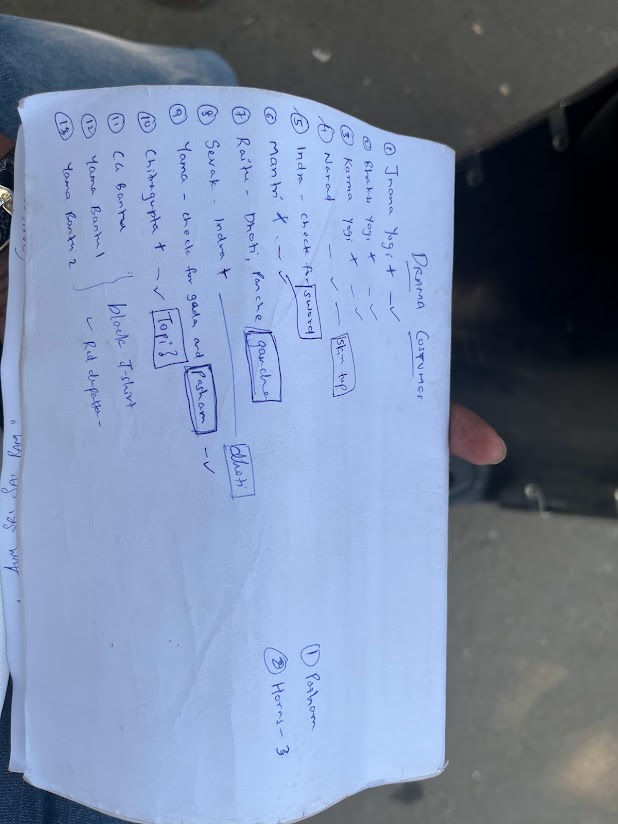 DRAMA COSTUMES
① Jnana Yogi + - ✓
② Bhakti Yogi + - ✓
③ Karma Yogi + - ✓
④ Narad - ✓ - skin top
⑤ Indra - check for sword
⑥ Mantri + - ✓
⑦ Raitu - Dhoti, Panche gancha
⑧ Sevak - Indra + dhoti
⑨ Yama - check for gada and Pasham - ✓
⑩ Chitragupta + - ✓ Topi?
⑪ CG Bantu
⑫ Yama Bantu 1 } black T-shirt
⑬ Yama Bantu 2 ✓ Red dupatta -
① Pasham
② Horns - 3
AUM SRI SAI RAM